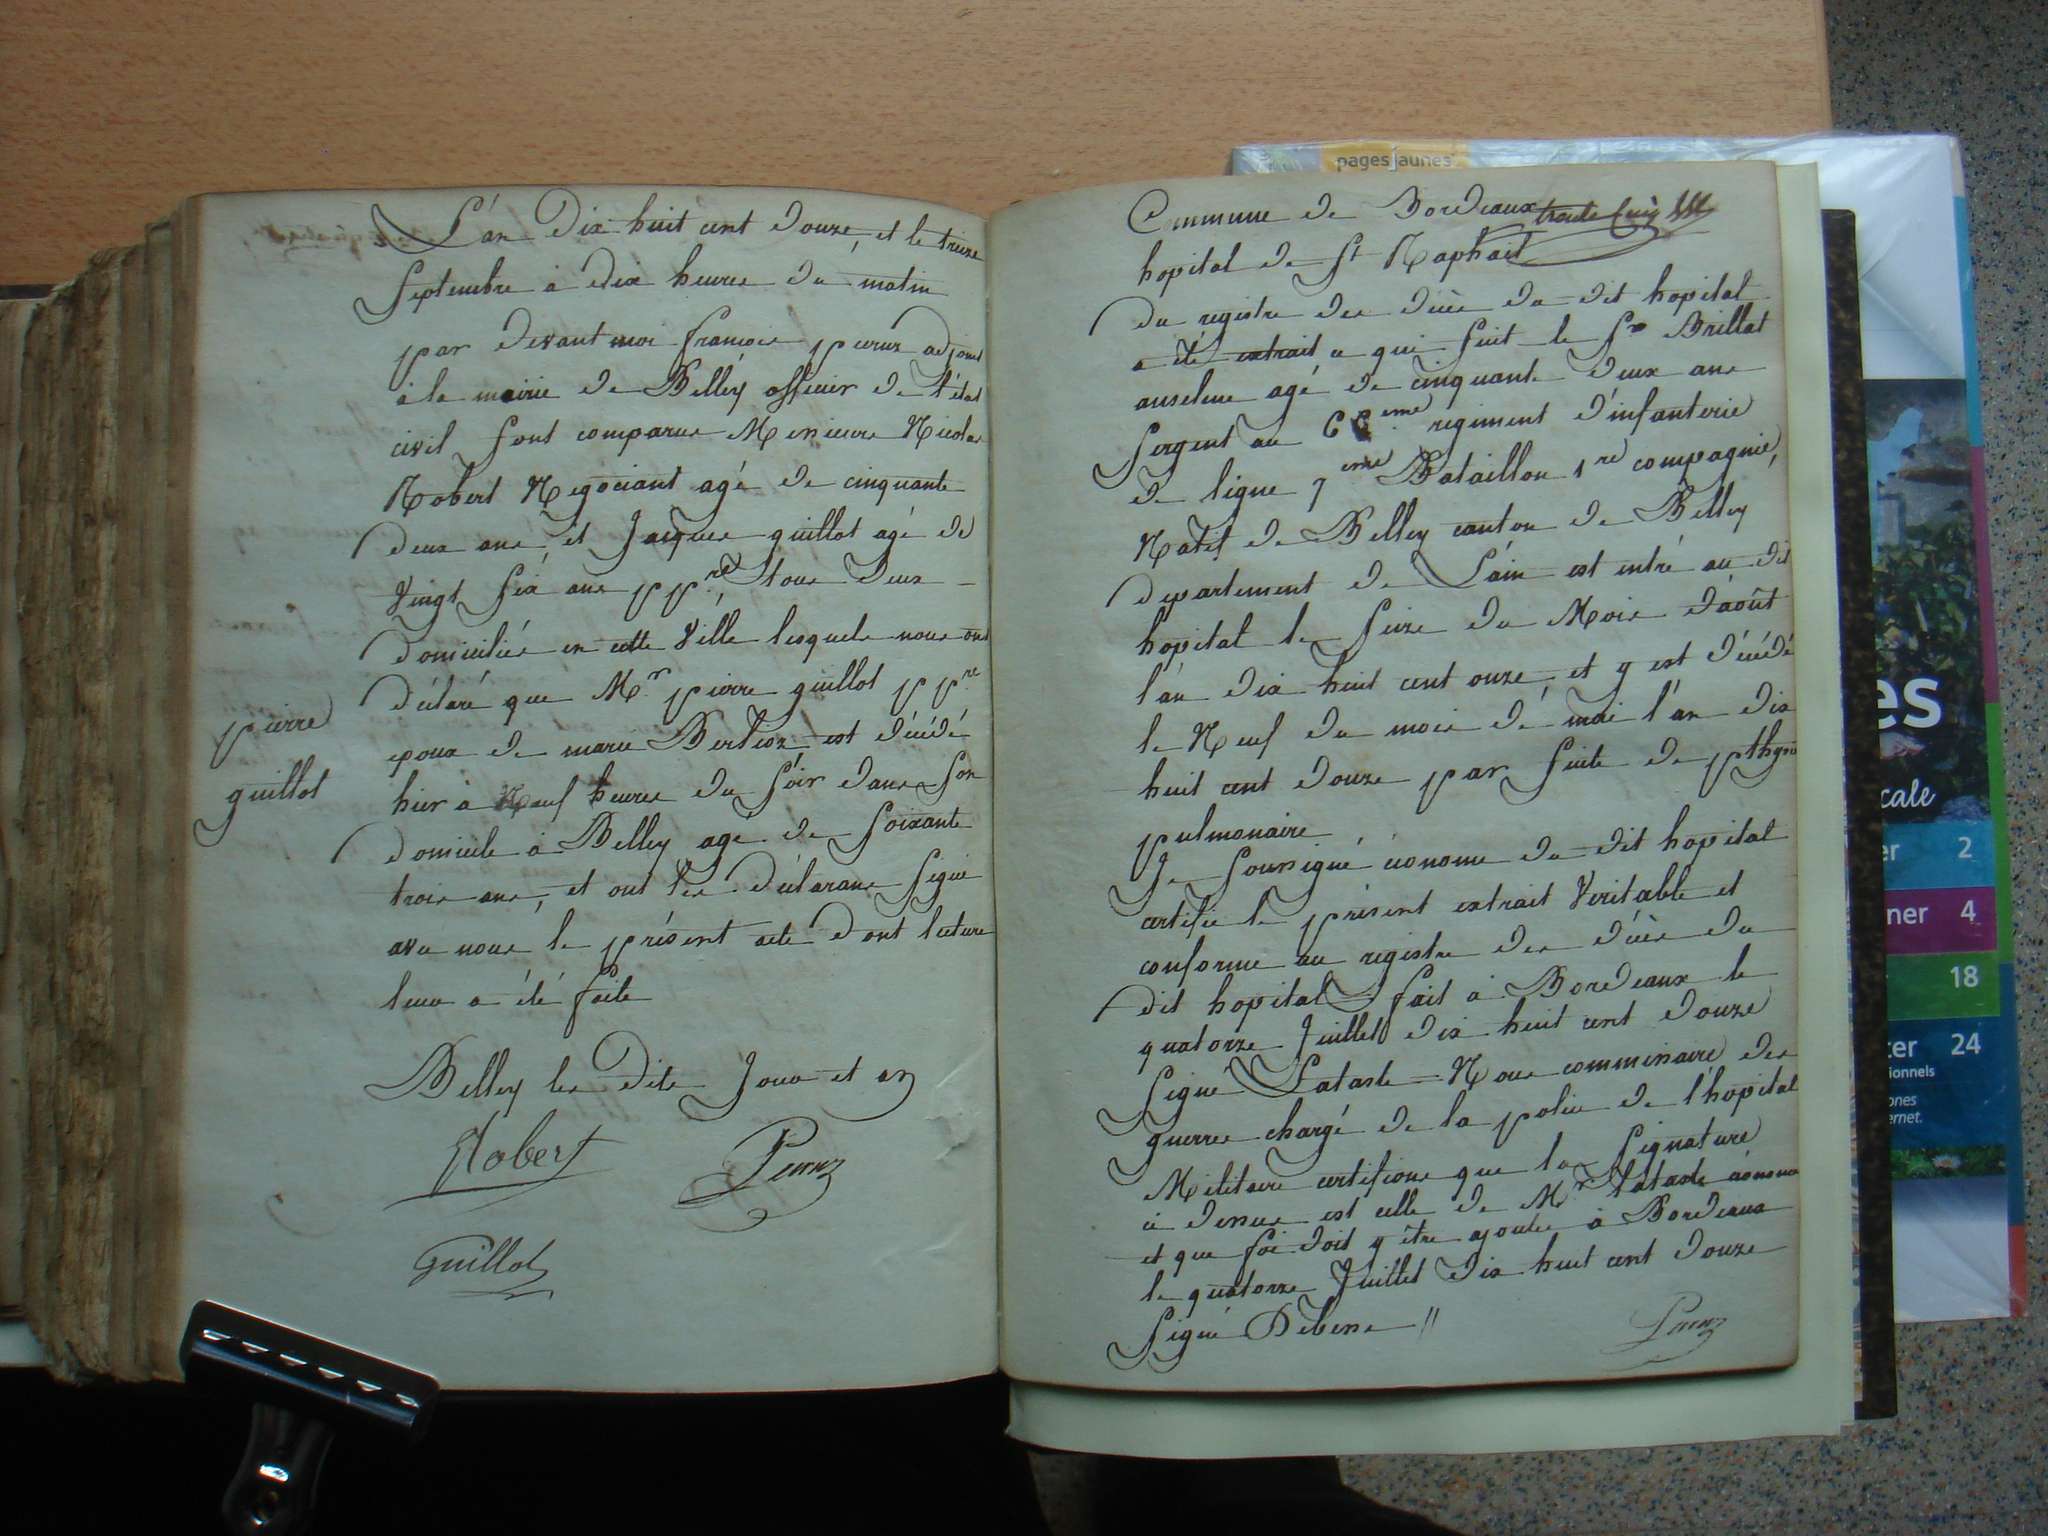 L'an Dix huit cent Douze, et le treize
Septembre à Dix heures du matin
par devant moi françois perux adjoint
à la mairie de Belley officier de l'état
civil sont comparus Messieurs Nicolas
Robert Negociant agé de cinquante
deux ans, et Jacques guillot agé de
vingt six ans ppre, tous deux
domiciliés en cette Ville lesquels nous ont
déclaré que Mr pierre guillot ppre
epoux de marie Berlioz est décédé
hier à Neuf heures du soir dans son
domicile à Belley agé de soixante
trois ans, et ont les déclarans signé
avec nous le présent acte dont lecture
leur a été faite
Belley les Dits Jour et an
Robert
Guillot
pierre
guillot
Commune de Bordeaux
hopital de St Raphaël
Du registre des décès du dit hopital
a été extrait ce qui suit le Sr Brillat
anselme agé de cinquante deux ans
Sergent au 66eme regiment d'infanterie
de ligne 7eme Bataillon 1re compagnie,
Natif de Belley canton de Belley
departement de L'ain est entré au dit
hopital le seize du Mois d'août
l'an dix huit cent onze et y est décédé
le Neuf du mois de mai l'an dix
huit cent douze par suite de
pulmonaire
Je soussigné économe du dit hopital
certifie le présent extrait Veritable et
conforme au registre des décès du
dit hopital fait à Bordeaux le
quatorze Juillet dix huit cent Douze
Signé Lataste = Nous commissaire des
guerres chargé de la police de l'hopital
Militaire certifions que la Signature
ci dessus est celle de Mr lataste économe
et que foi doit y être ajoutée à Bordeaux
le quatorze Juillet dix huit cent Douze
Signé //
pages jaunes
es
cale
er 2
ner 4
18
ter 24
ionnels
ones
ernet.